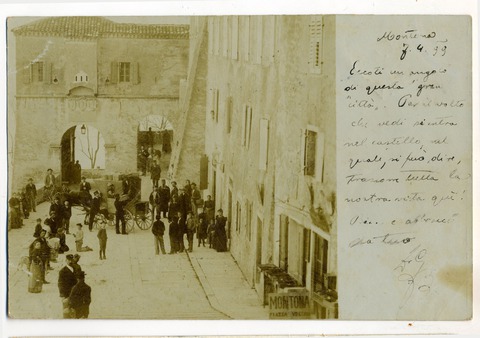 Montona
4. 99
Eccoti un angolo
di questa gran
città. Per il volto
che vedi si entra
nel castello, nel
quale, si può dire,
tutta la
nostra vita qui!
tuo
MONTONA
PIAZZA